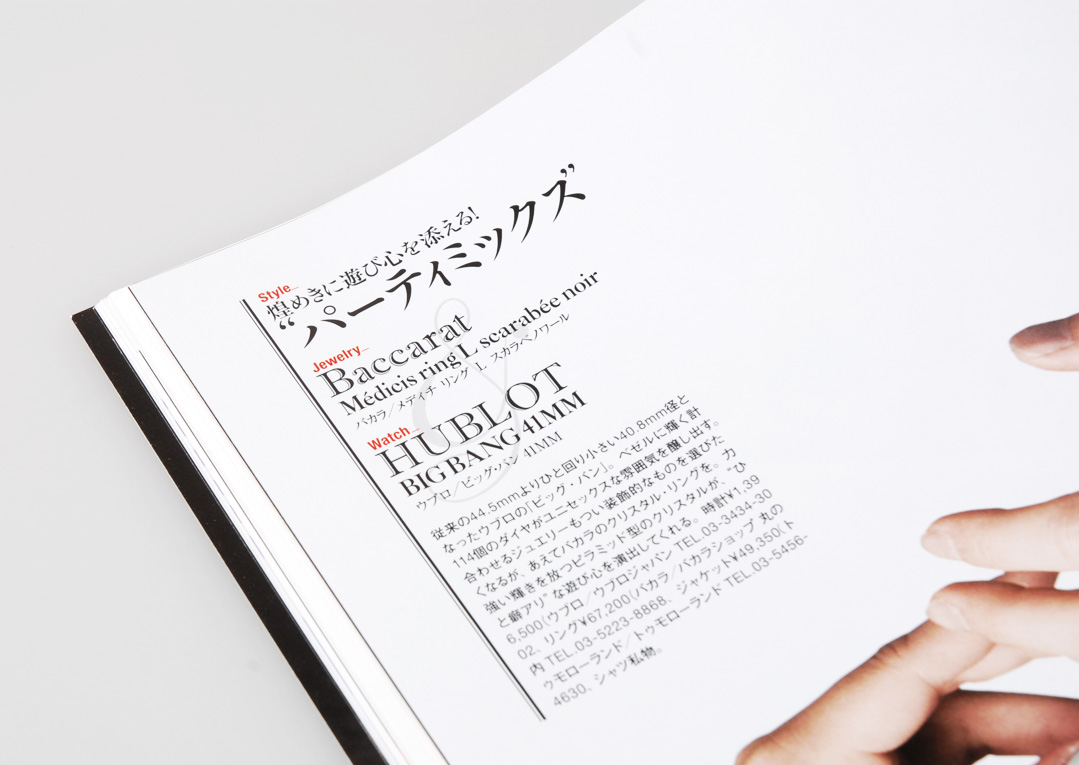 Style_
煌めきに遊び心を添える!
“パーティミックス”
Jewelry_
Baccarat
Médicis ring L scarabée noir
バカラ/メディチ リング L スカラベノワール
&
Watch_
HUBLOT
BIG BANG 41MM
ウブロ/ビッグ・バン 41MM
従来の44.5mmよりひと回り小さい40.8mm径と
なったウブロの「ビッグ・バン」。ベゼルに輝く計
114個のダイヤがユニセックスな雰囲気を醸し出す。
合わせるジュエリーもつい装飾的なものを選びた
くなるが、あえてバカラのクリスタル・リングを。力
強い輝きを放つピラミッド型のクリスタルが、“ひ
と癖アリ”な遊び心を演出してくれる。時計¥1,39
6,500(ウブロ/ウブロジャパン TEL.03-3434-30
02、リング¥67,200(バカラ/バカラショップ 丸の
内 TEL.03-5223-8868、ジャケット¥49,350(ト
ゥモローランド/トゥモローランド TEL.03-5456-
4630、シャツ私物。